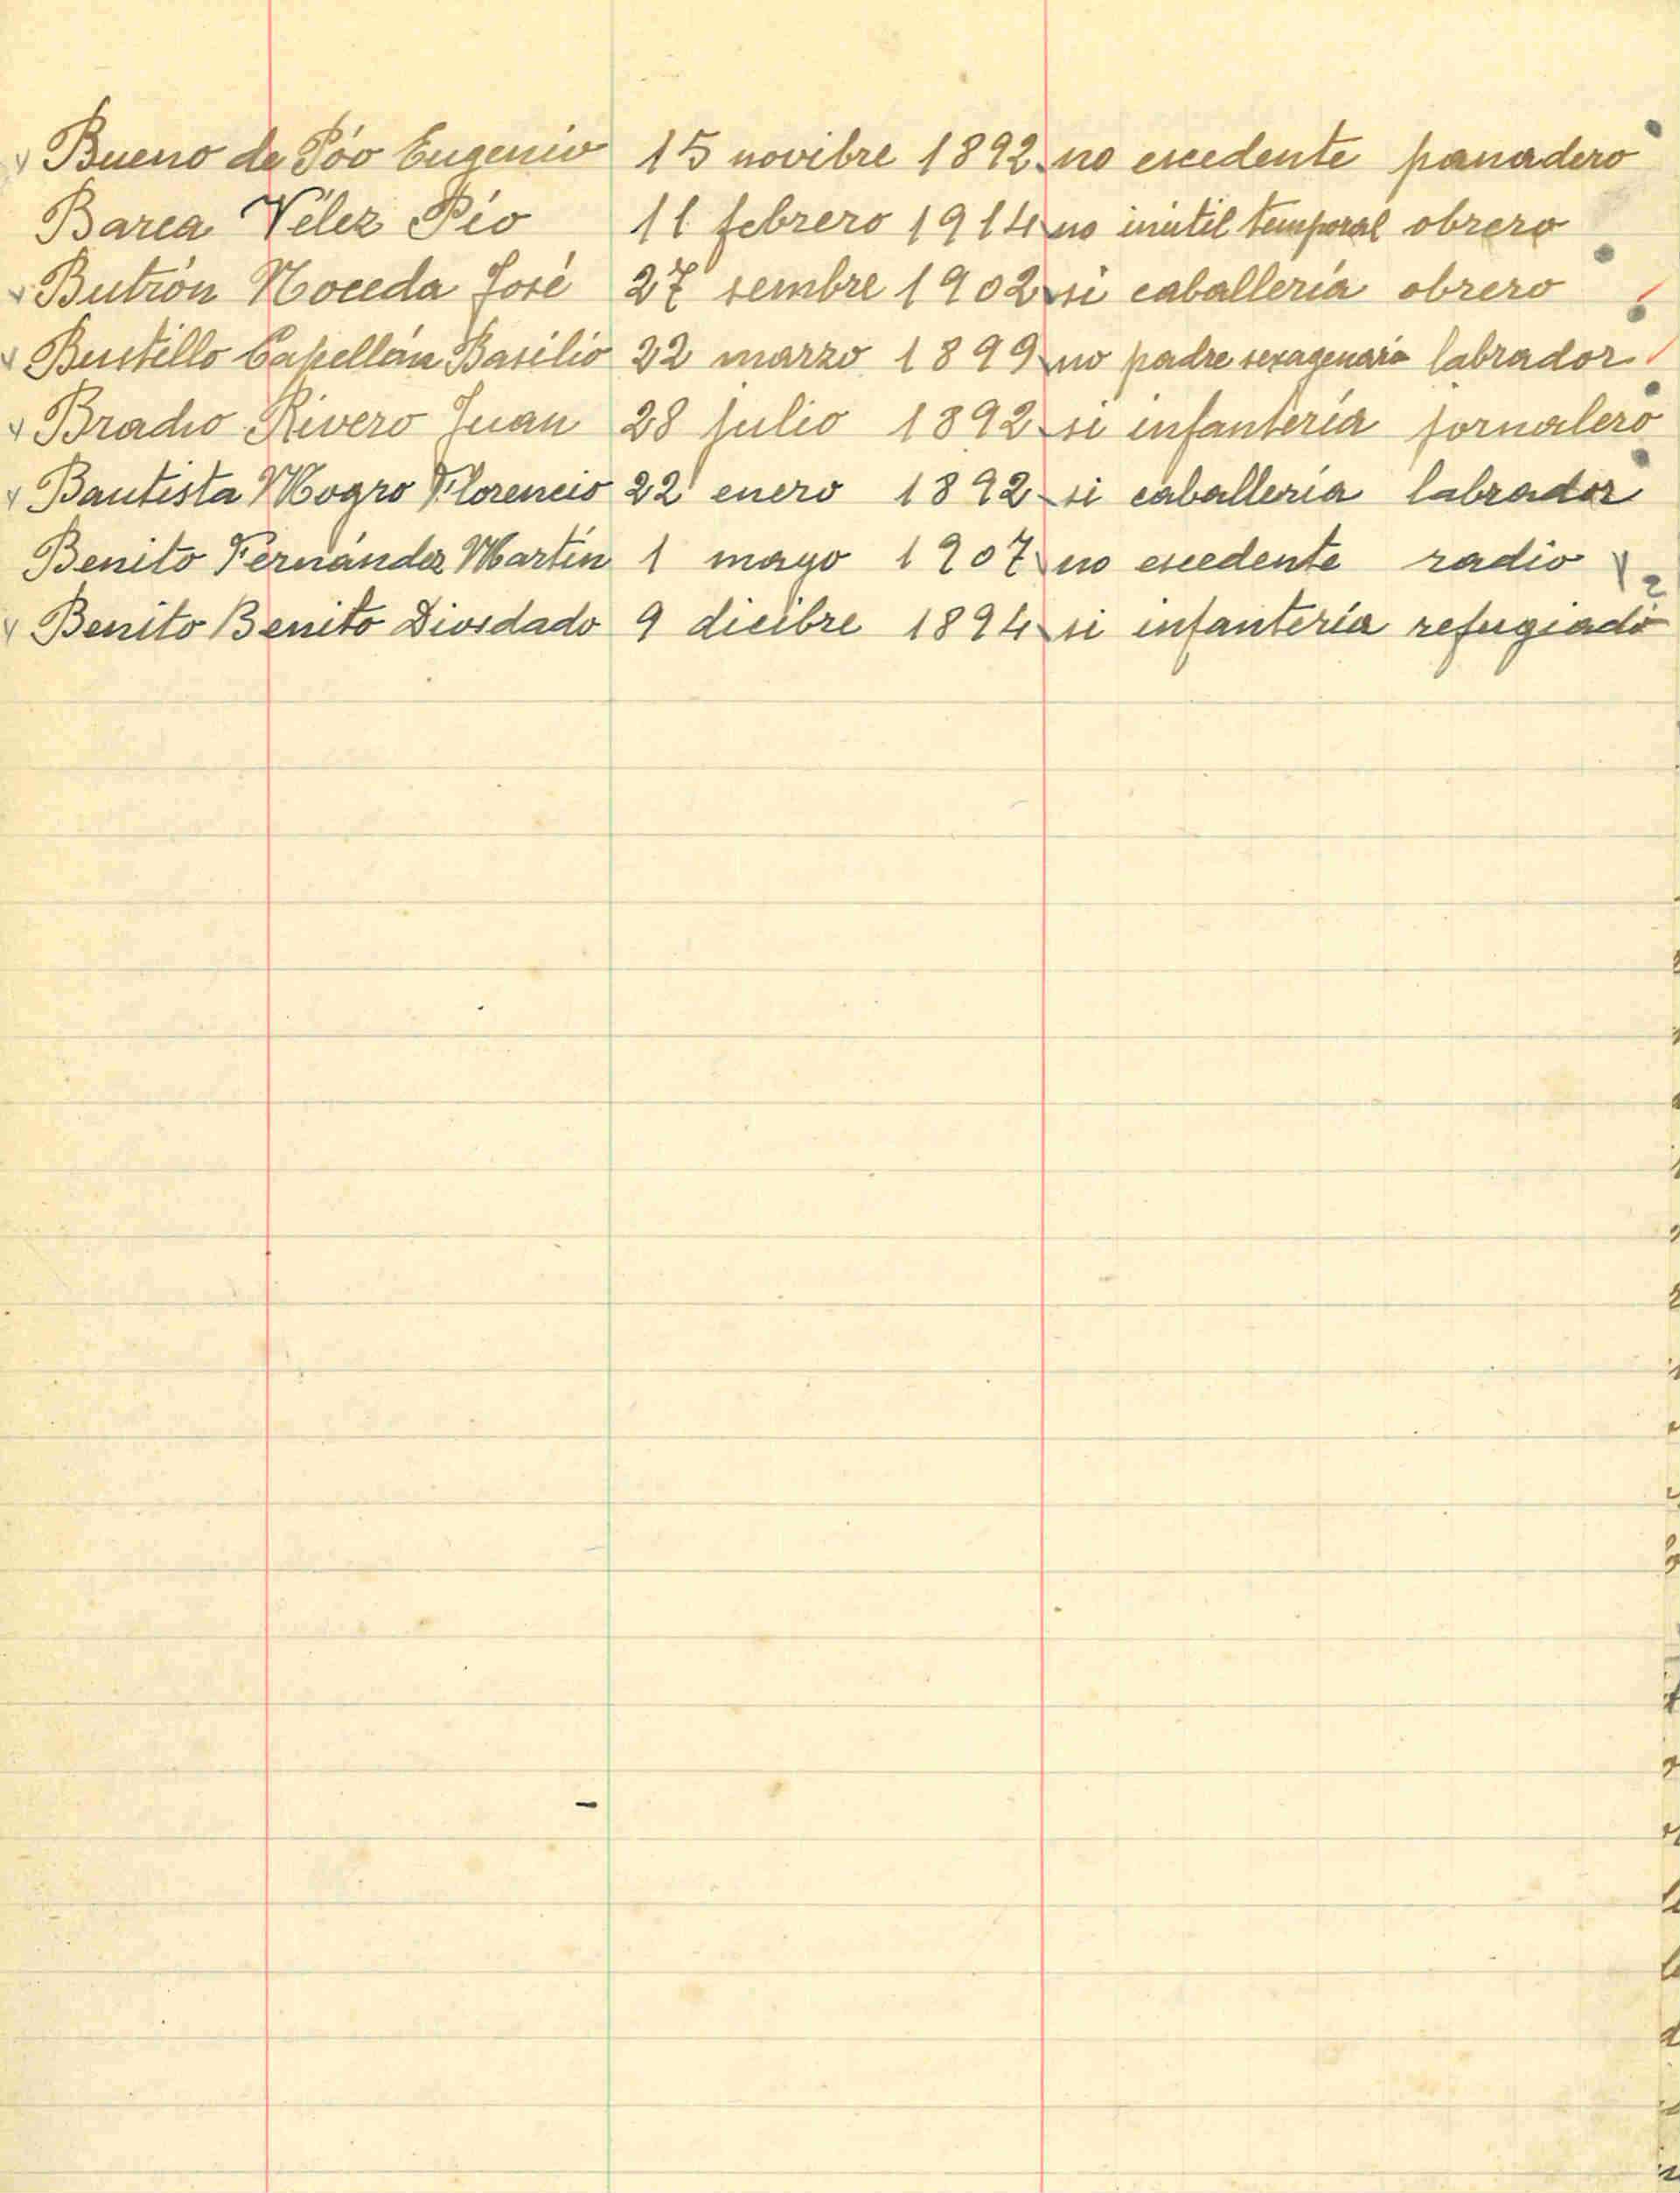 Bueno de Póo Eugenio 15 novibre 1892 no escedente panadero
Barea Vélez Pío 11 febrero 1914 no inútil temporal obrero
Butrón Noceda José 27 sembre 1902 si caballería obrero
Bustillo Capellán Basilio 22 marzo 1899 no padre sexagenario labrador
Bradio Rivero Juan 28 julio 1892 si infantería jornalero
Bautista Mogro Florencio 22 enero 1892 si caballería labrador
Benito Fernández Martín 1 mayo 1907 no escedente radio
Benito Benito Diosdado 9 dicibre 1894 si infantería refugiado